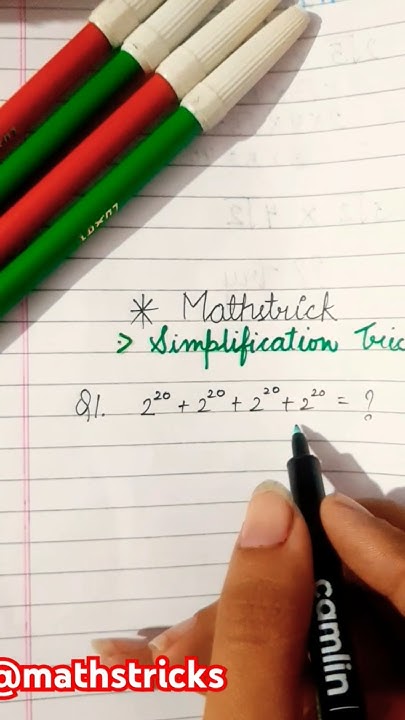 LUXOR
* Mathstrick
:> Simplification Tric
Q1. 2²⁰ + 2²⁰ + 2²⁰ + 2²⁰ = ?
camlin
@mathstricks